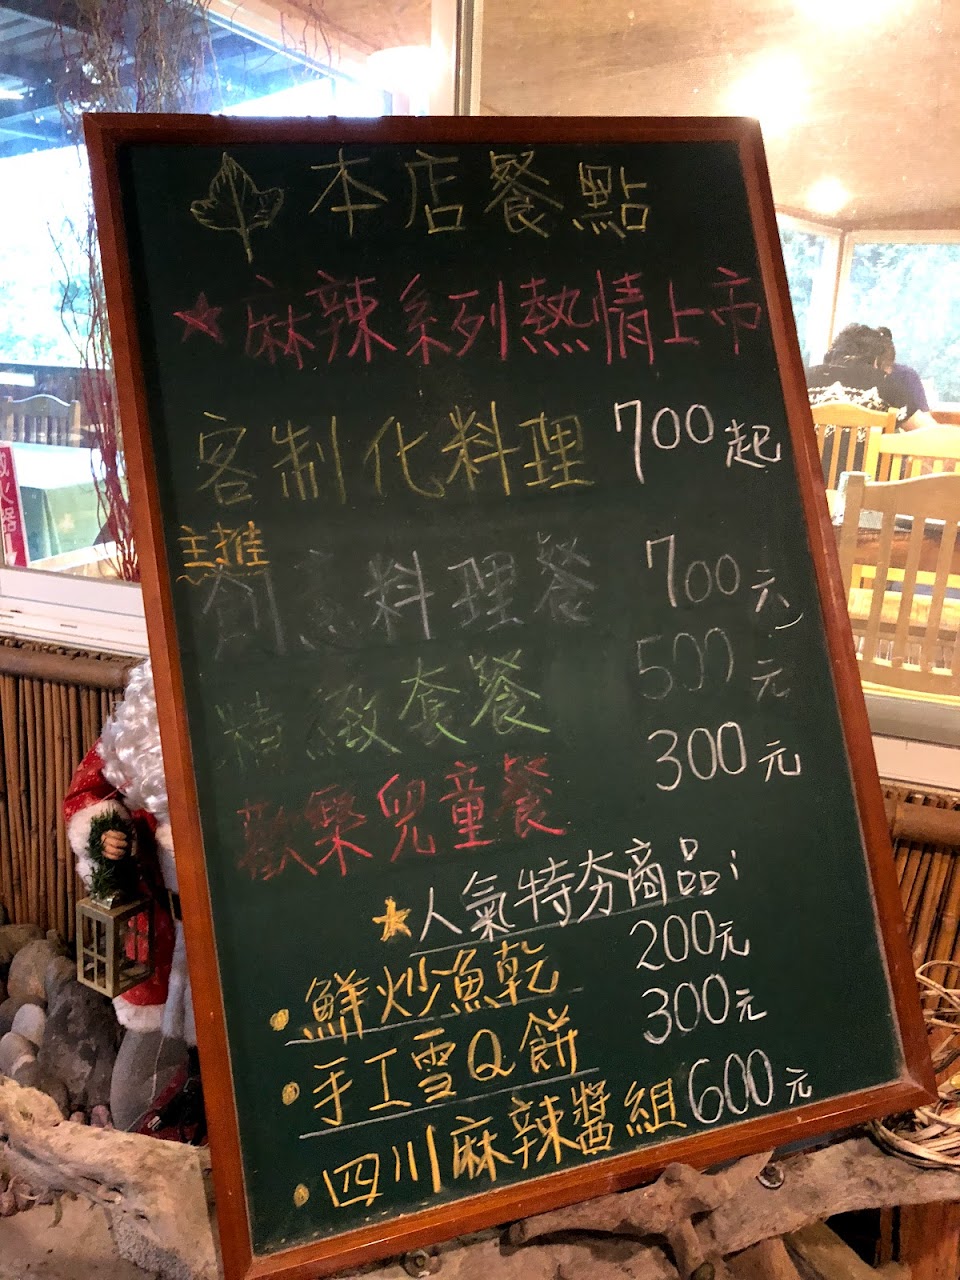 本店餐點
★麻辣系列熱情上市
客制化料理 700起
主推
創意料理餐 700元
精緻套餐 500元
歡樂兒童餐 300元
★人氣特夯商品;
•鮮炒魚乾 200元
•手工雪Q餅 300元
•四川麻辣醬組 600元